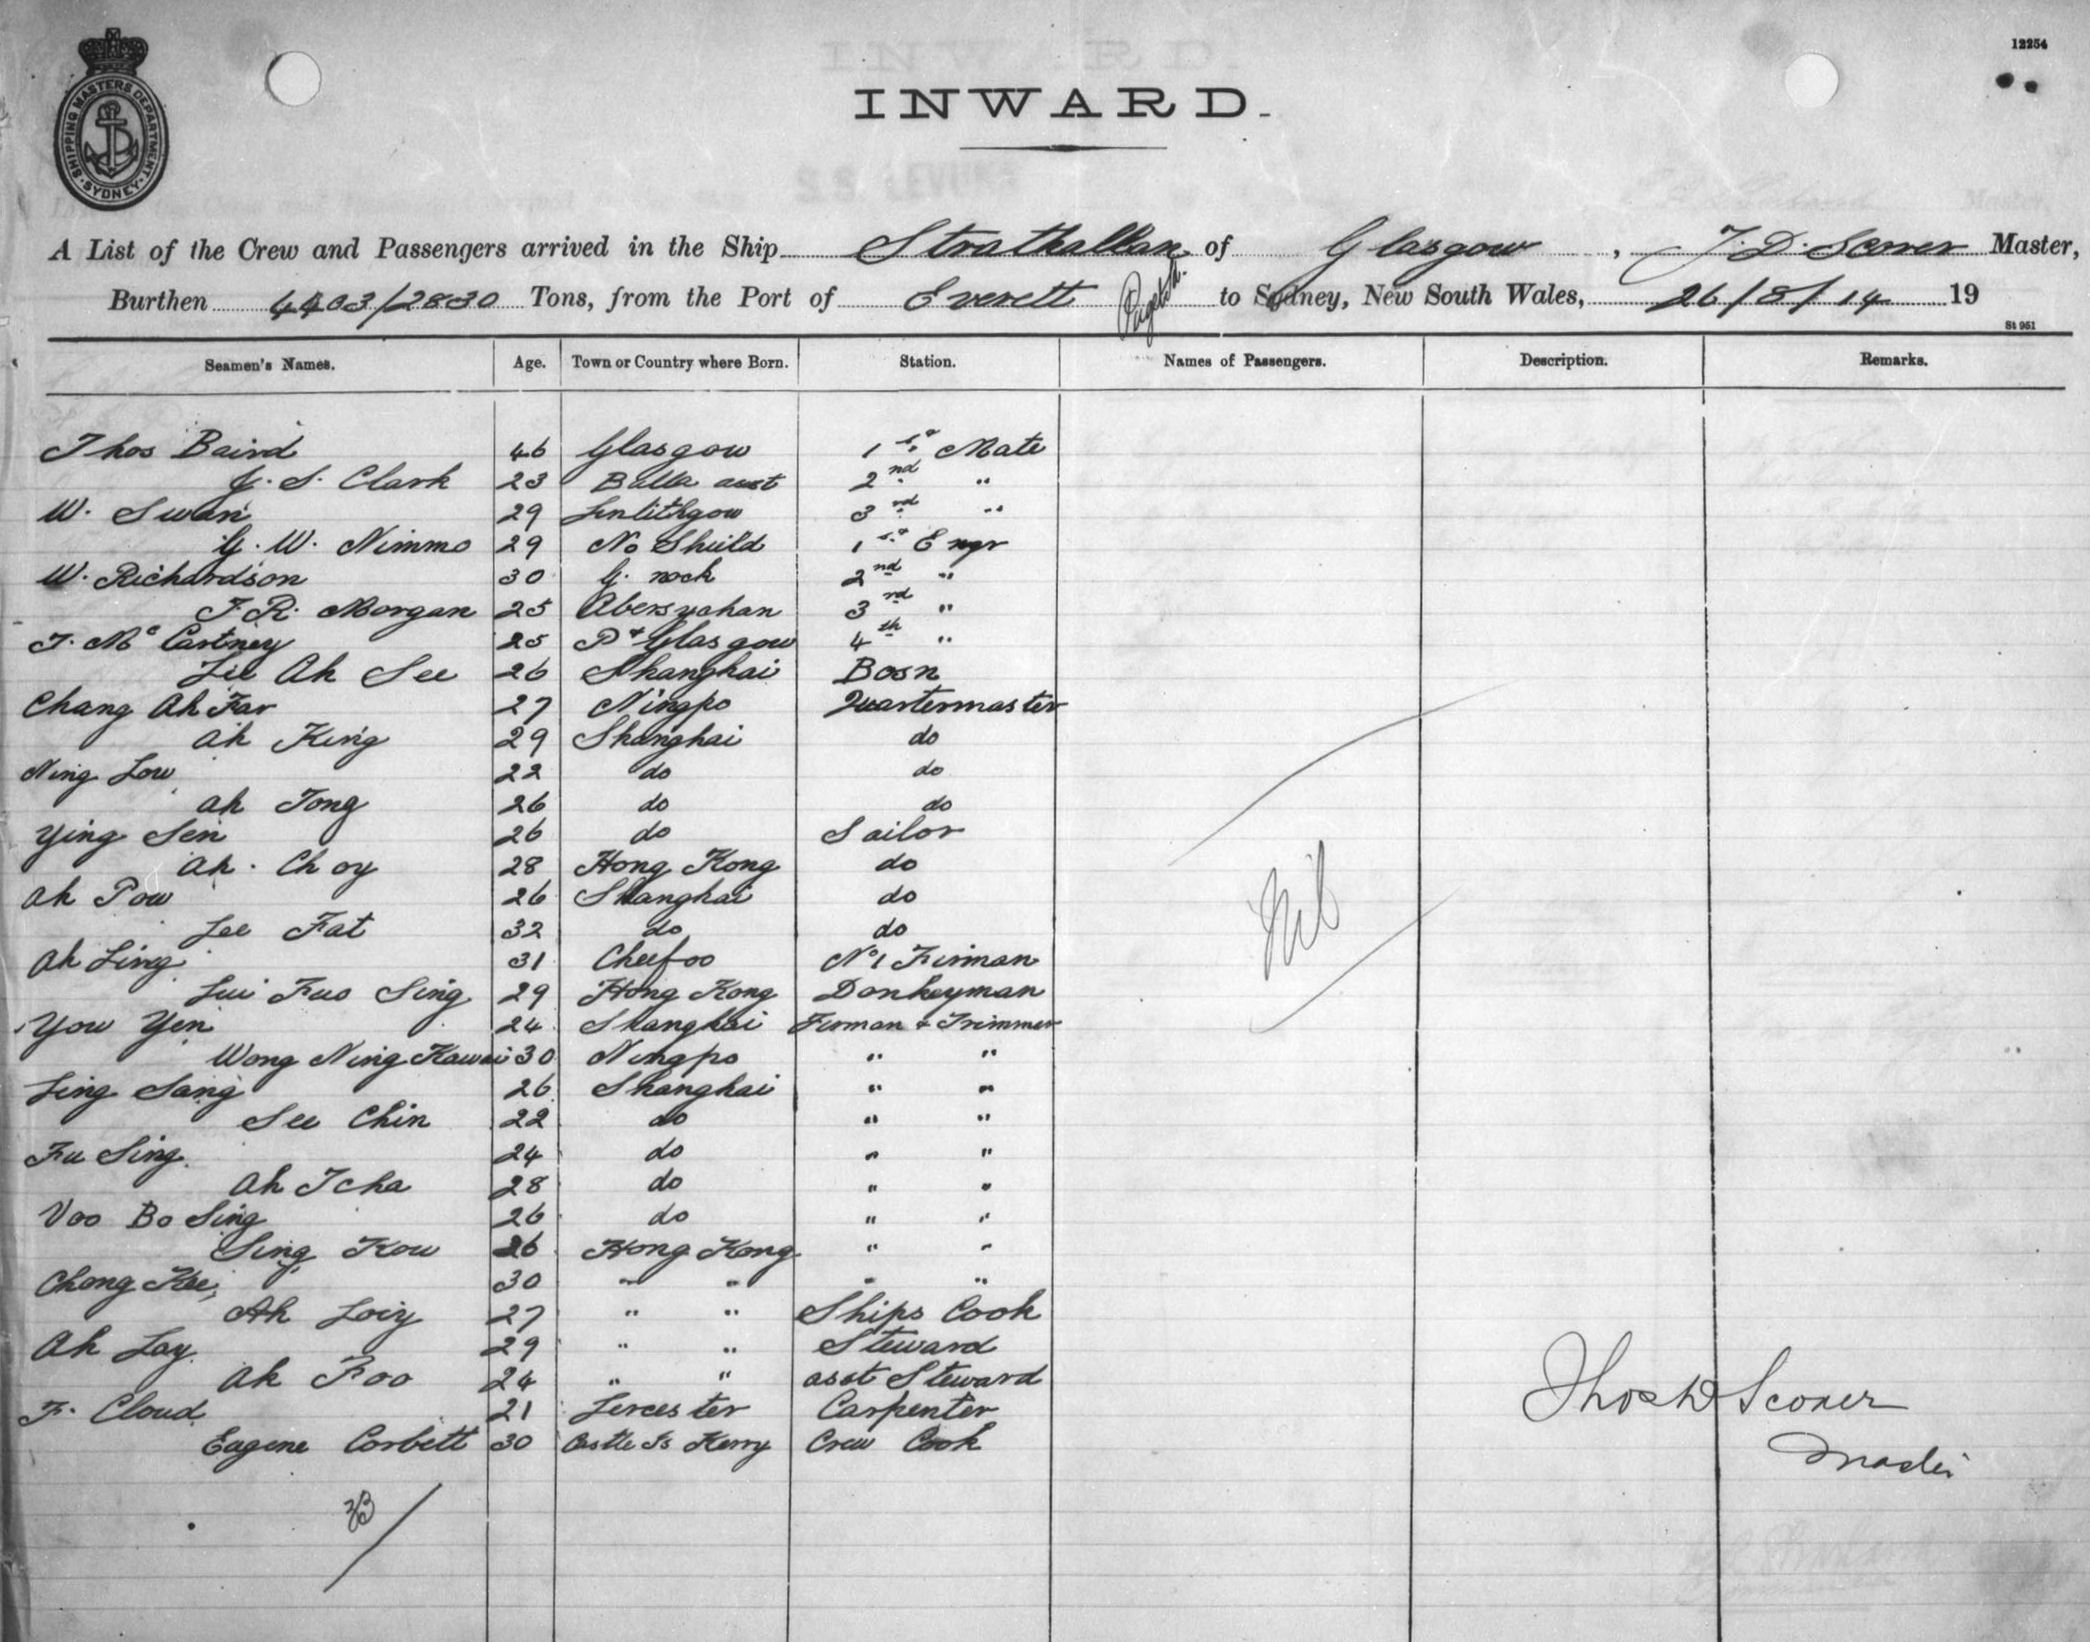 12254
SHIPPING MASTERS DEPARTMENT SYDNEY
INWARD.
A List of the Crew and Passengers arrived in the Ship Strathallan of Glasgow, T. D. Scorer Master,
Burthen 4403/2830 Tons, from the Port of Everett to Sydney, New South Wales, 26/8/14 19
St 951
Seamen's Names. Age. Town or Country where Born. Station. Names of Passengers. Description. Remarks.
Thos Baird 46 Glasgow 1st Mate
J. S. Clark 23 Balla aust 2nd "
W. Swan 29 Linlithgow 3rd "
G. W. Nimmo 29 No Shield 1st Engr
W. Richardson 30 G. nock 2nd "
J. R. Morgan 25 3rd "
J. McCartney 25 Pt Glasgow 4th "
Lee Ah See 26 Shanghai Bosn
Chang Ah Far 27 Ningpo Quartermaster
Ah King 29 Shanghai do
Ning Low 22 do do
Ah Tong 26 do do
Ying Sen 26 do Sailor
Ah. Choy 28 Hong Kong do
Ah Pow 26 Shanghai do
Lee Fat 32 do do
Ah Ling 31 Cheefoo No1 Firman
Lui Fuo Sing 29 Hong Kong Donkeyman
You Yen 24 Shanghai Firman & Trimmer
Wong Ning Kawai 30 Ningpo " "
Ling Sang 26 Shanghai " "
See Chin 22 do " "
Fu Sing 24 do " "
Ah Tcha 28 do " "
Voo Bo Sing 26 do " "
Sing Kow 26 Hong Kong " "
Chong Kee 30 " " " "
Ah Loiy 27 " " Ships Cook
Ah Lay 29 " " Steward
Ah Foo 24 " " asst Steward
F. Cloud 21 Leicester Carpenter
Eugene Corbett 30 Castle Is Kerry Crew Cook
Nil
Thos D Scorer
Master